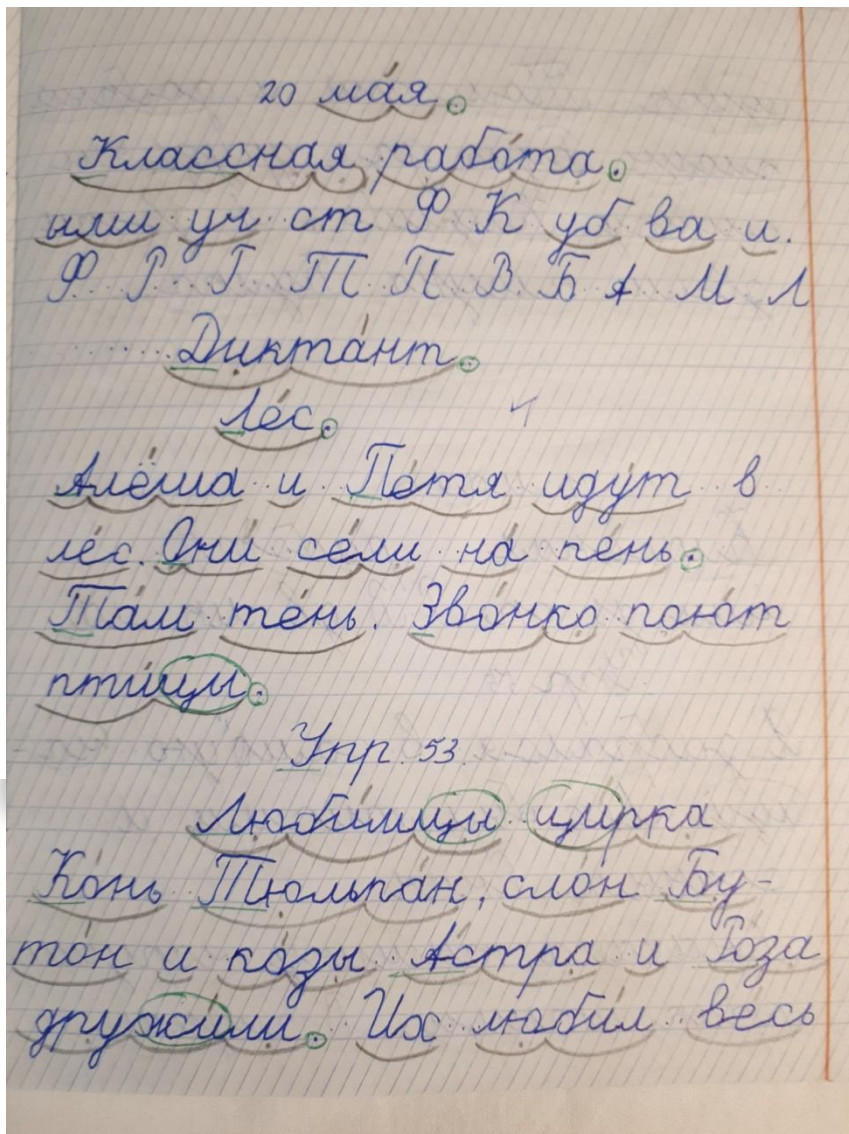 20 мая.
Классная работа.
ыми уч ст Ф К уб ва и.
Ф Р Г Т П В Б А М Л
Диктант.
Лес.
Алёша и Петя идут в
лес. Они сели на пень.
Там тень. Звонко поют
птицы.
Упр. 53.
Любимицы цирка
Конь Тюльпан, слон Бу-
тон и козы Астра и Роза
дружили. Их любил весь